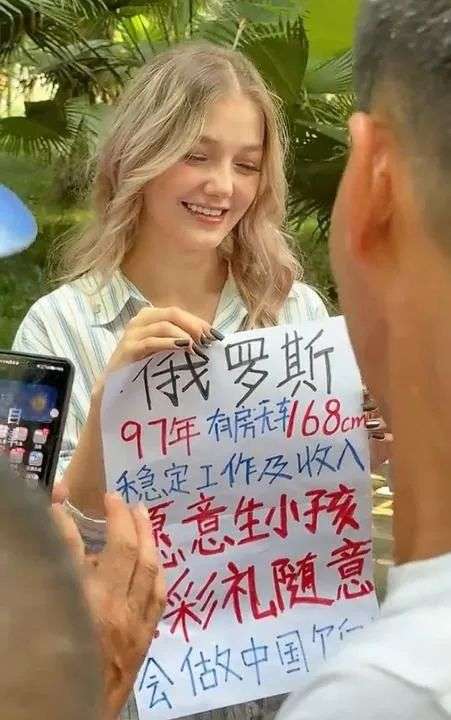 俄罗斯
97年 有房无车 168cm
稳定工作及收入
愿意生小孩
彩礼随意
会做中国